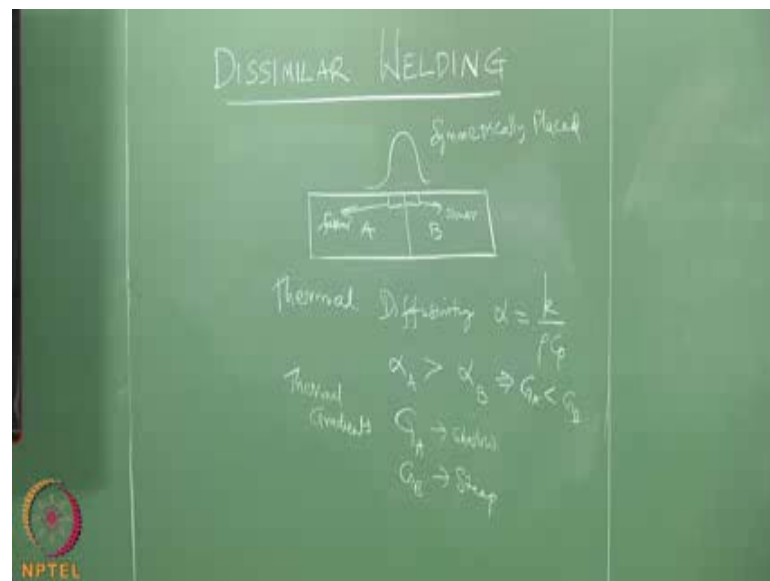 DISSIMILAR WELDING
Symmetrically Placed
faster A B slower
Thermal Diffusivity α = k / ρCp
α_A > α_B ⇒ G_A < G_B
Thermal
Gradients G_A →
G_B → Steep
NPTEL